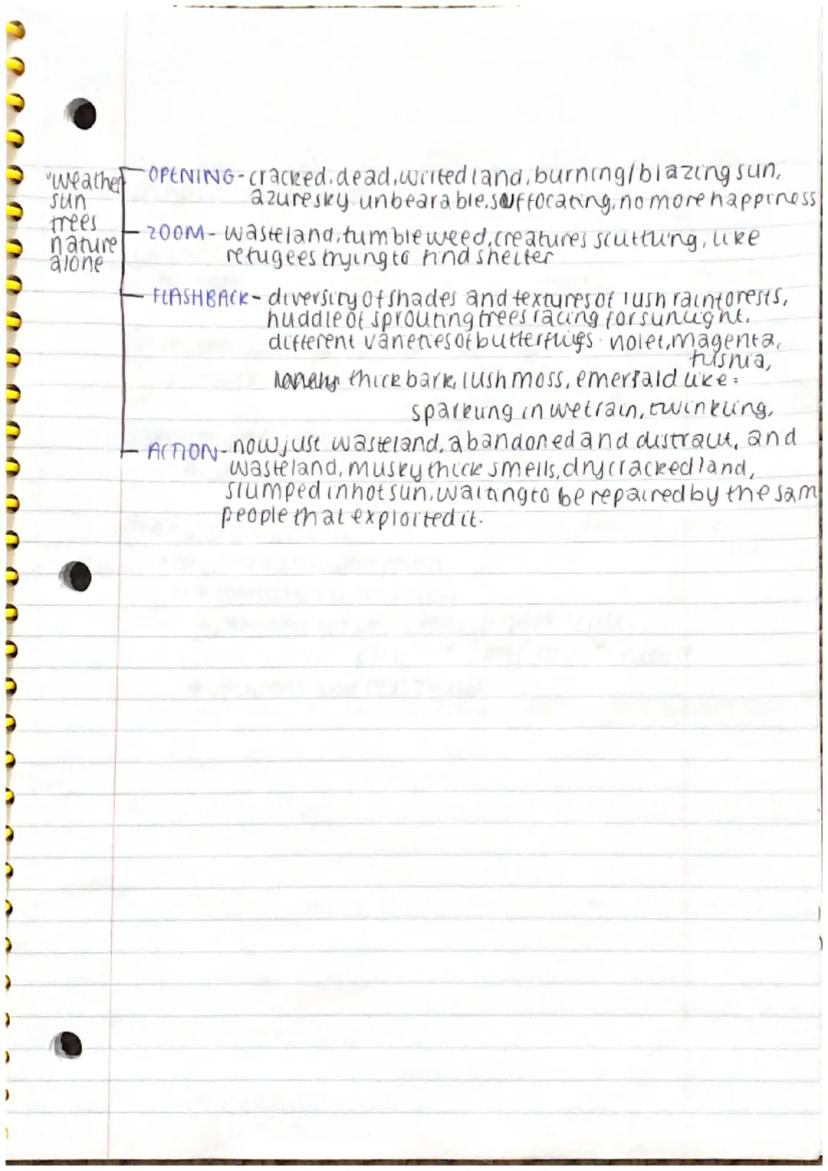 "weather
sun
trees
nature
alone
OPENING - cracked, dead, wilted land, burning/blazing sun,
azure sky. unbearable, suffocating, no more happiness
ZOOM - wasteland, tumbleweed, creatures scuttling, like
refugees trying to find shelter
FLASHBACK - diversity of shades and textures of lush rainforests,
huddle of sprouting trees racing for sunlight.
different varieties of butterflies. violet, magenta,
fushia,
thick bark, lush moss, emerald like:
sparkling in wet rain, twinkling,
ACTION - now just wasteland, abandoned and distraut, and
wasteland, musky thick smells, dry cracked land,
slumped in hot sun, waiting to be repaired by the sam
people that exploited it.